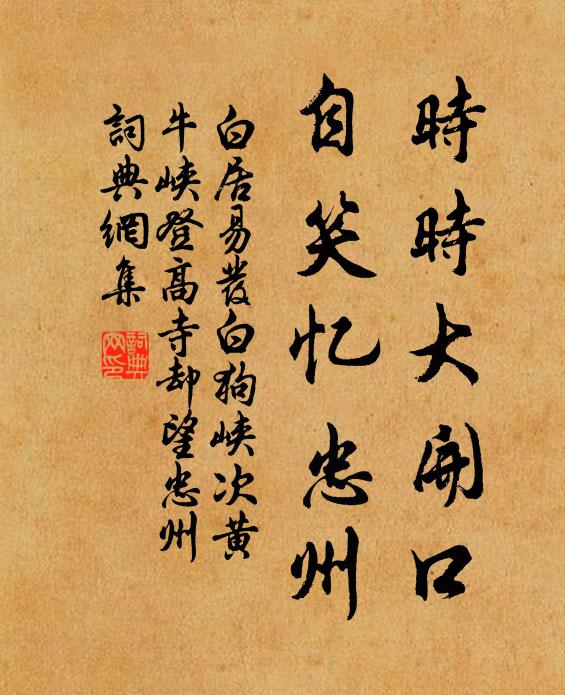 時時大開口
自笑忆忠州
白居易發白狗峽次黃
牛峽登高寺却望忠州
詞典網集
詞典
网印